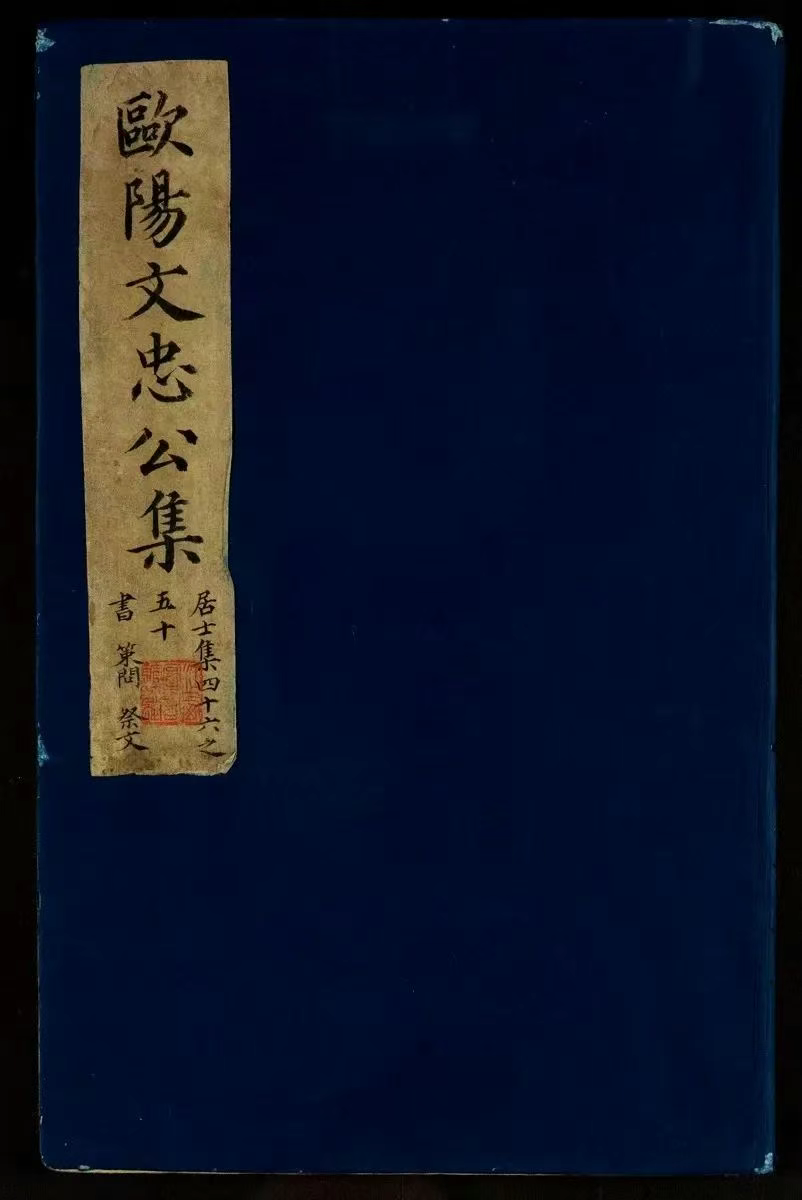 歐陽文忠公集
居士集四十六之
五十
書 策問 祭文